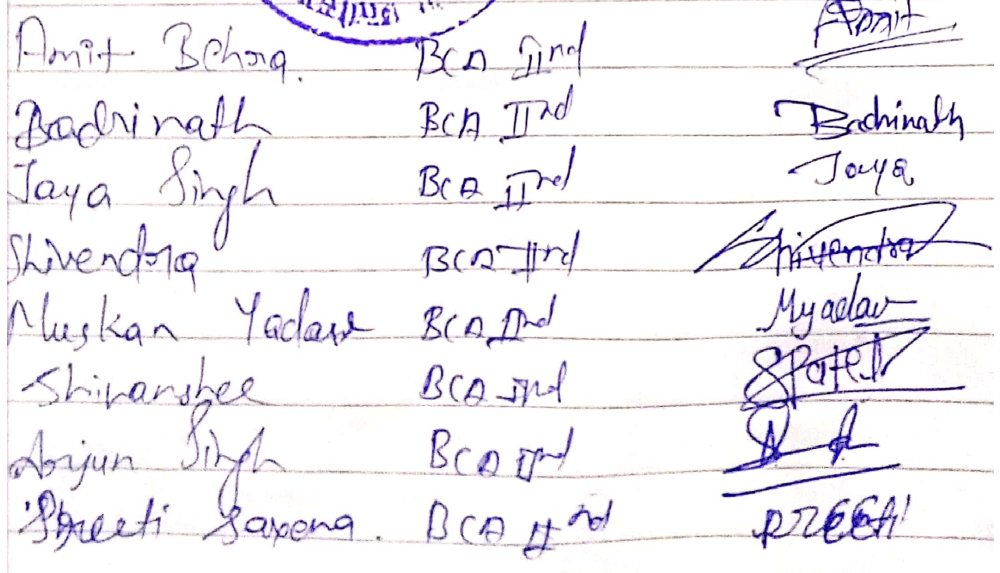 Amit Behra. BCA IInd Amit
Badrinath BCA IInd Badrinath
Jaya Singh BCA IInd Jaya
Shivendra BCA IInd Shivendra
Muskan Yadav BCA IInd Myadav
Shivanshee BCA IInd SPatel
Arjun Singh BCA IInd
Preeti Saxena. BCA IInd PREETI